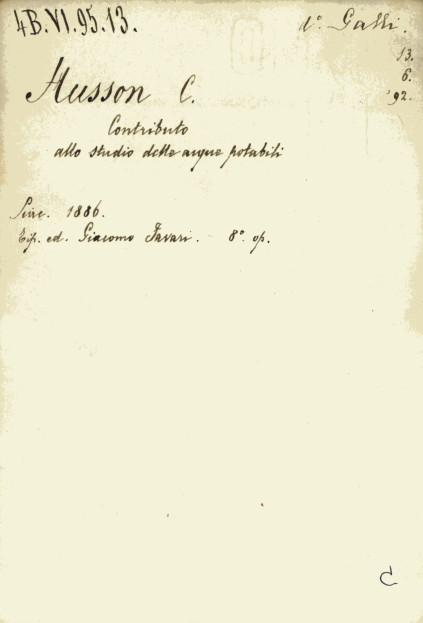 4B.VI.95.13.
d° Galli.
13.
6.
'92.
Husson C.
Contributo
allo studio delle acque potabili
1886.
Tip. ed. Giacomo Favari. 8°. op.
C